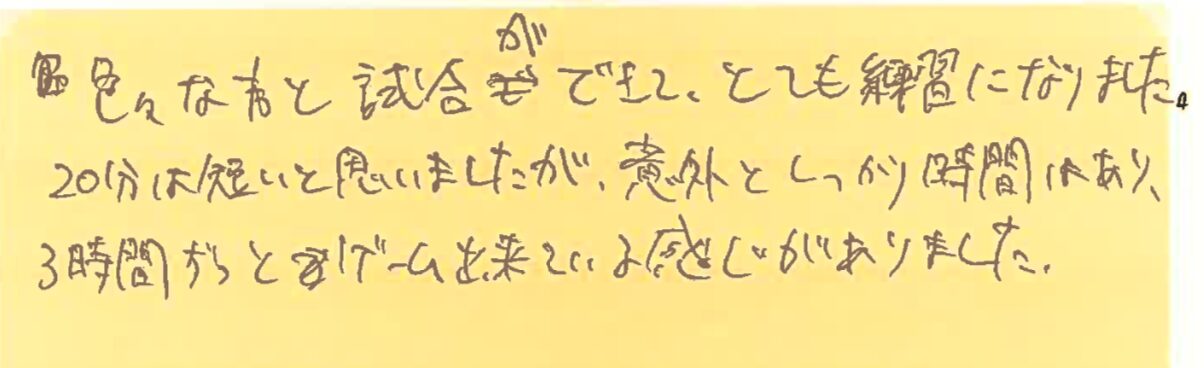 色々な方と試合ができて、とても練習になりました。
20分は短いと思いましたが、意外としっかり時間はあり、
3時間ずっとゲーム出来ている感じがありました。